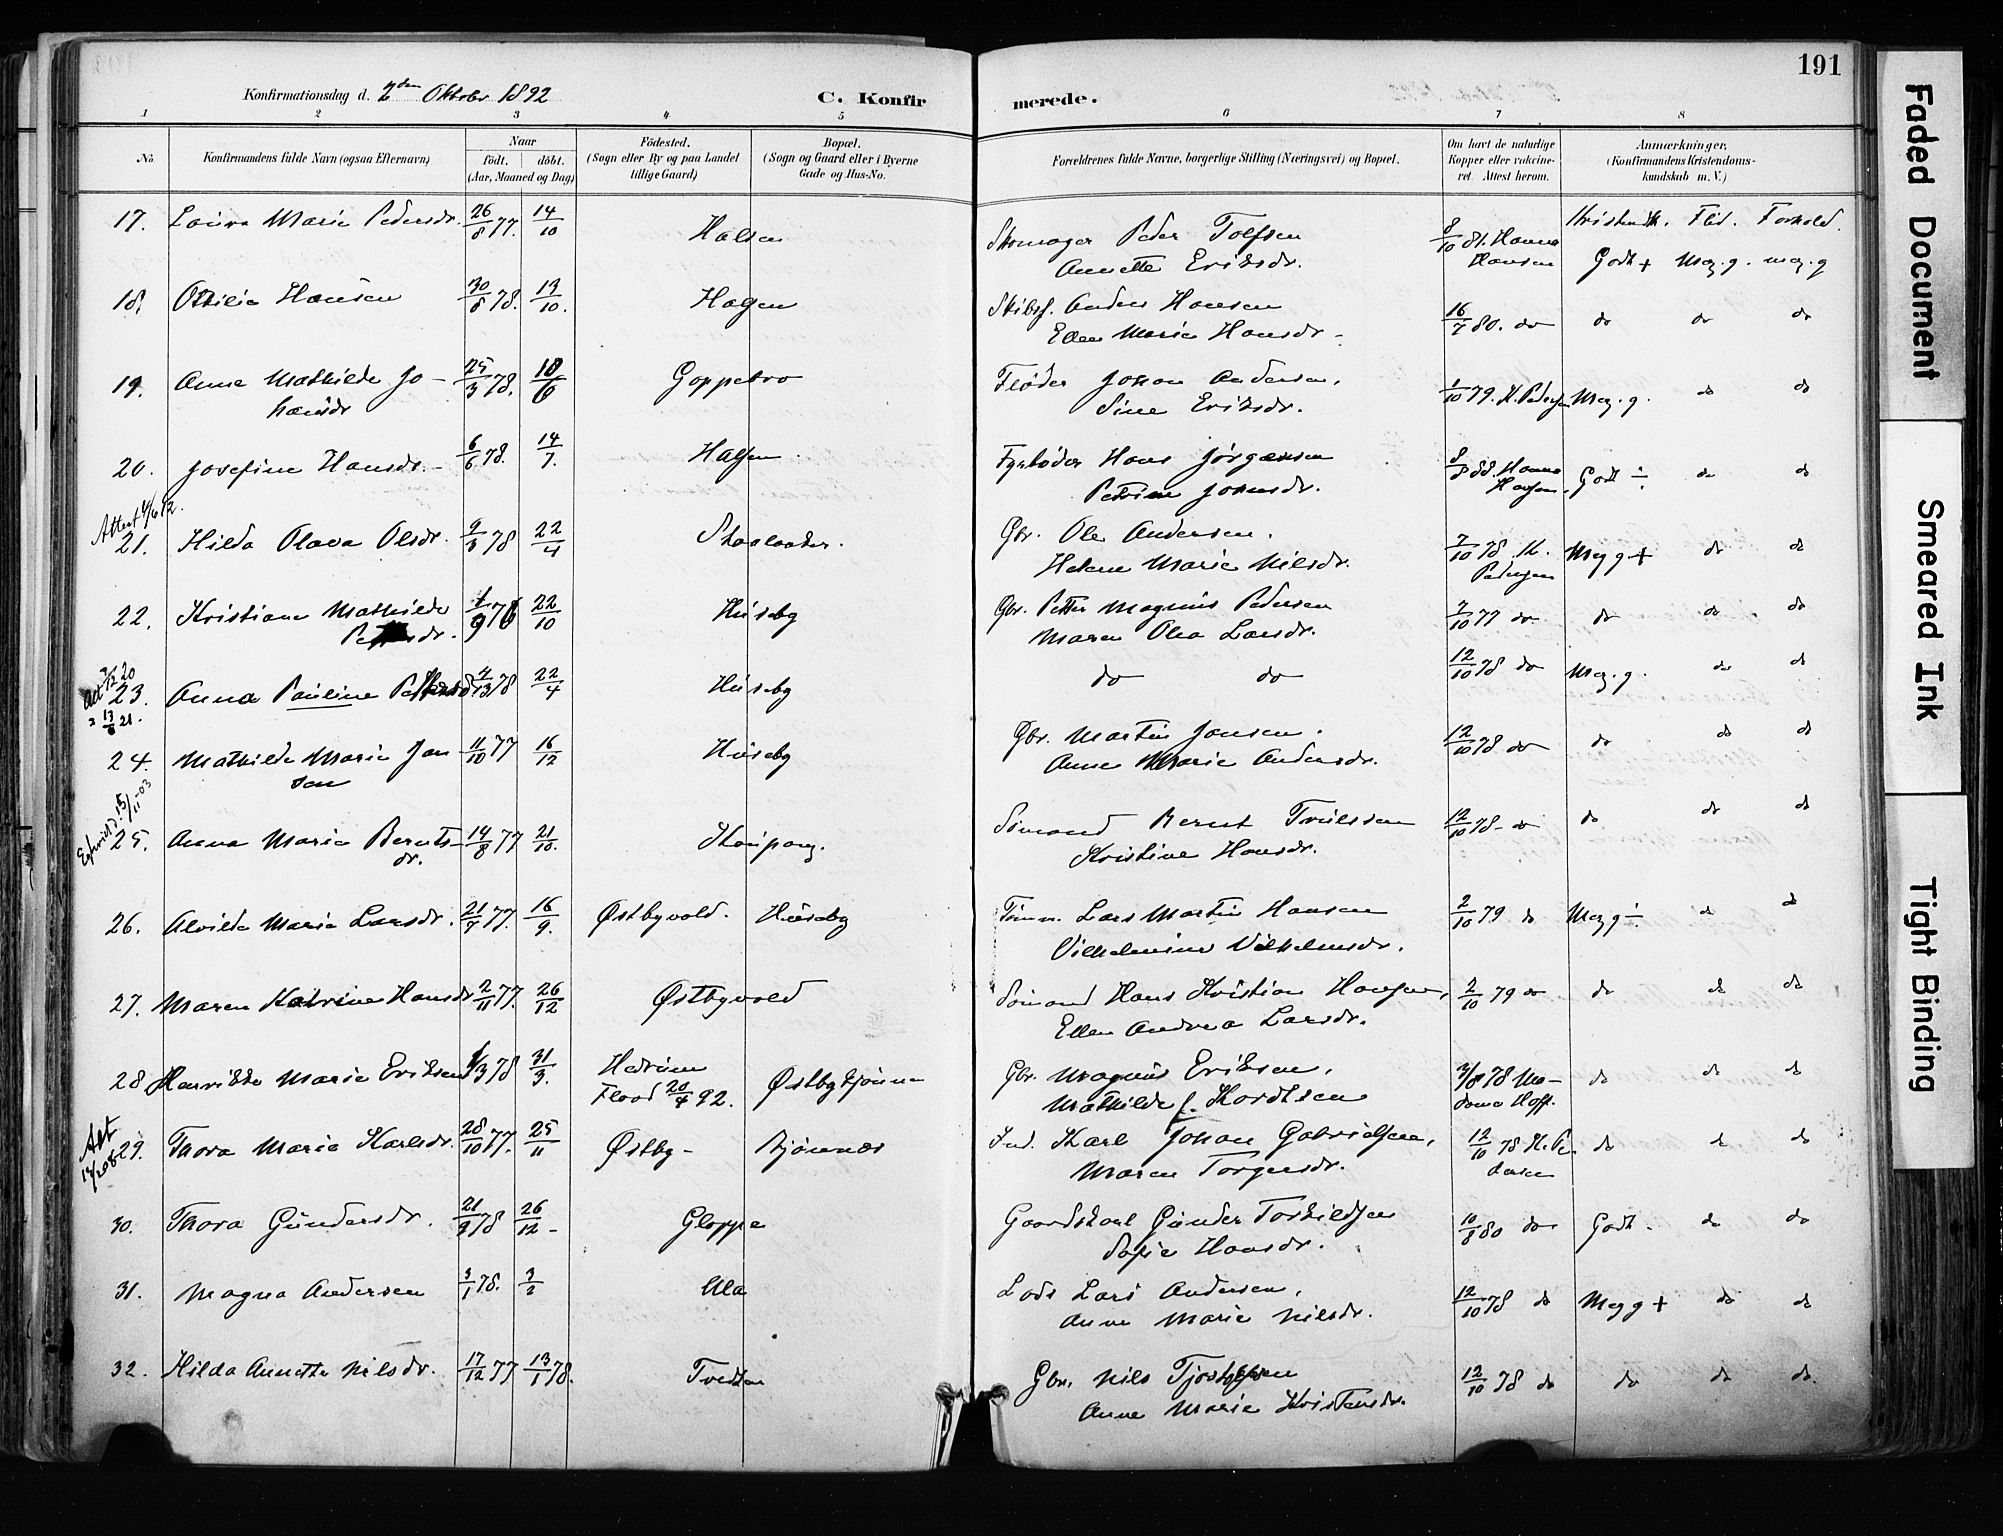 191
Konfirmationsdag d. 2den Oktobr 1892
C. Konfirmerede.
1 2 3 4 5 6 7 8
No. Konfirmandens fulde Navn (ogsaa Efternavn) Naar födt. döbt. (Aar, Maaned og Dag) Födested. (Sogn eller By og paa Landet tillige Gaard) Bopæl. (Sogn og Gaard eller i Byerne Gade og Hus-No. Forældrenes fulde Navne, borgerlige Stilling (Næringsvei) og Bopæl. Om havt de naturlige Kopper eller vakcineret. Attest herom. Anmærkninger, (Konfirmandens Kristendomskundskab m. V.)
Kristendk. Flid. Forhold.
17. Laura Marie Pedersdr. 26/8 77. 14/10 Halsen Skomager Peder Tolfsen 8/10 81. Hanna
Annette Eriksdr. Hansen Godt + Meg. g. meg. g
18. Othilie Hansen 30/8 78. 13/10. Halsen Skibsf. Anders Hansen 16/7 80. do do do do
Ellen Marie Hansdr -
19. Anne Mathilde Jo- 25/3 78. 10/6 Goppebro Fløder Johan Andersen, 1/10 79. K. Pedersen Meg. g. do do
hansdr Sine Eriksdr.
20. Josefine Hansdr. - 6/6 78. 14/7. Halsen Fyrbøder Hans Jörgensen 8/8 88. Hanna Godt ÷ do do
Petrine Johnsdr. Hansen.
Attest 4/6 12.
21. Hilda Olava Olsdr. 9/3 78 22/4 Skaalaker. Gbr. Ole Andersen. 7/10 78 K. Meg g + do do
Helene Marie Nilsdr. Pedersen
22. Kristiane Mathilde 1/9 76 22/10 Huseby Gbr. Petter Magnus Pedersen 7/10 77 do do do do
Maren Olea Larsdr.
23. Anna Pauline 4/3 78 22/4 Huseby do do 12/10 78 do Meg. g. do do
24. Mathilde Marie Jan 11/10 77 16/12 Huseby Gbr. Martin Jansen. 12/10 78 do do do do
sen Anne Marie Andersdr.
25. Anna Marie Bernts- 14/8 77 21/10. Kaupang. Sömand Bernt Trulssen 12/10 78 do do do do
dr. Kristine Hansdr.
26. Alvilde Marie Larsdr. 21/7 77. 16/9. Østbyvold. Huseby Tömm. Lars Martin Hansen 2/10 79 do Meg g ÷ do do
Vilhelmine Vilhelmsdr.
27. Maren Katrine Hansdr 2/11 77. 26/12 Østbyvold Sömand Hans Kristian Hansen, 2/10 79 do do do do
Ellen Andrea Larsdr.
28 Henrikke Marie Eriksen 1/3 78 31/3. Hedrum Gbr. Magnus Eriksen, 78 Ma- do do do
Flood 20/4 92. Østbykjönne Mathilde f. Kordtsen dame Hoff.
Att
29. Thora Marie Karlsdr. 28/10 77. 25/11 Østby - Bjönnes Ind. Karl Johan Gabrielsen, 12/10 78 K. Pe- do do do
Maren Torgersdr. dersen
30. Thora Gundersdr. 21/9 78 26/12 - Gloppe Gaardskarl Gunder Torkildsen 10/8 80 do Godt. do do
Sofie Hansdr.
31. Magna Andersen 3/1 78. 3/2 Ula Lods Lars Andersen, 12/10 78 do Meg g + do do
Anne Marie Nilsdr.
32. Hilda Annette Nilsdr. 17/12 77 13/1 78. Tvedten Gbr. Nils 12/10 78 do do do do
Anne Marie Kristensdr.
Faded Document
Smeared Ink
Tight Binding